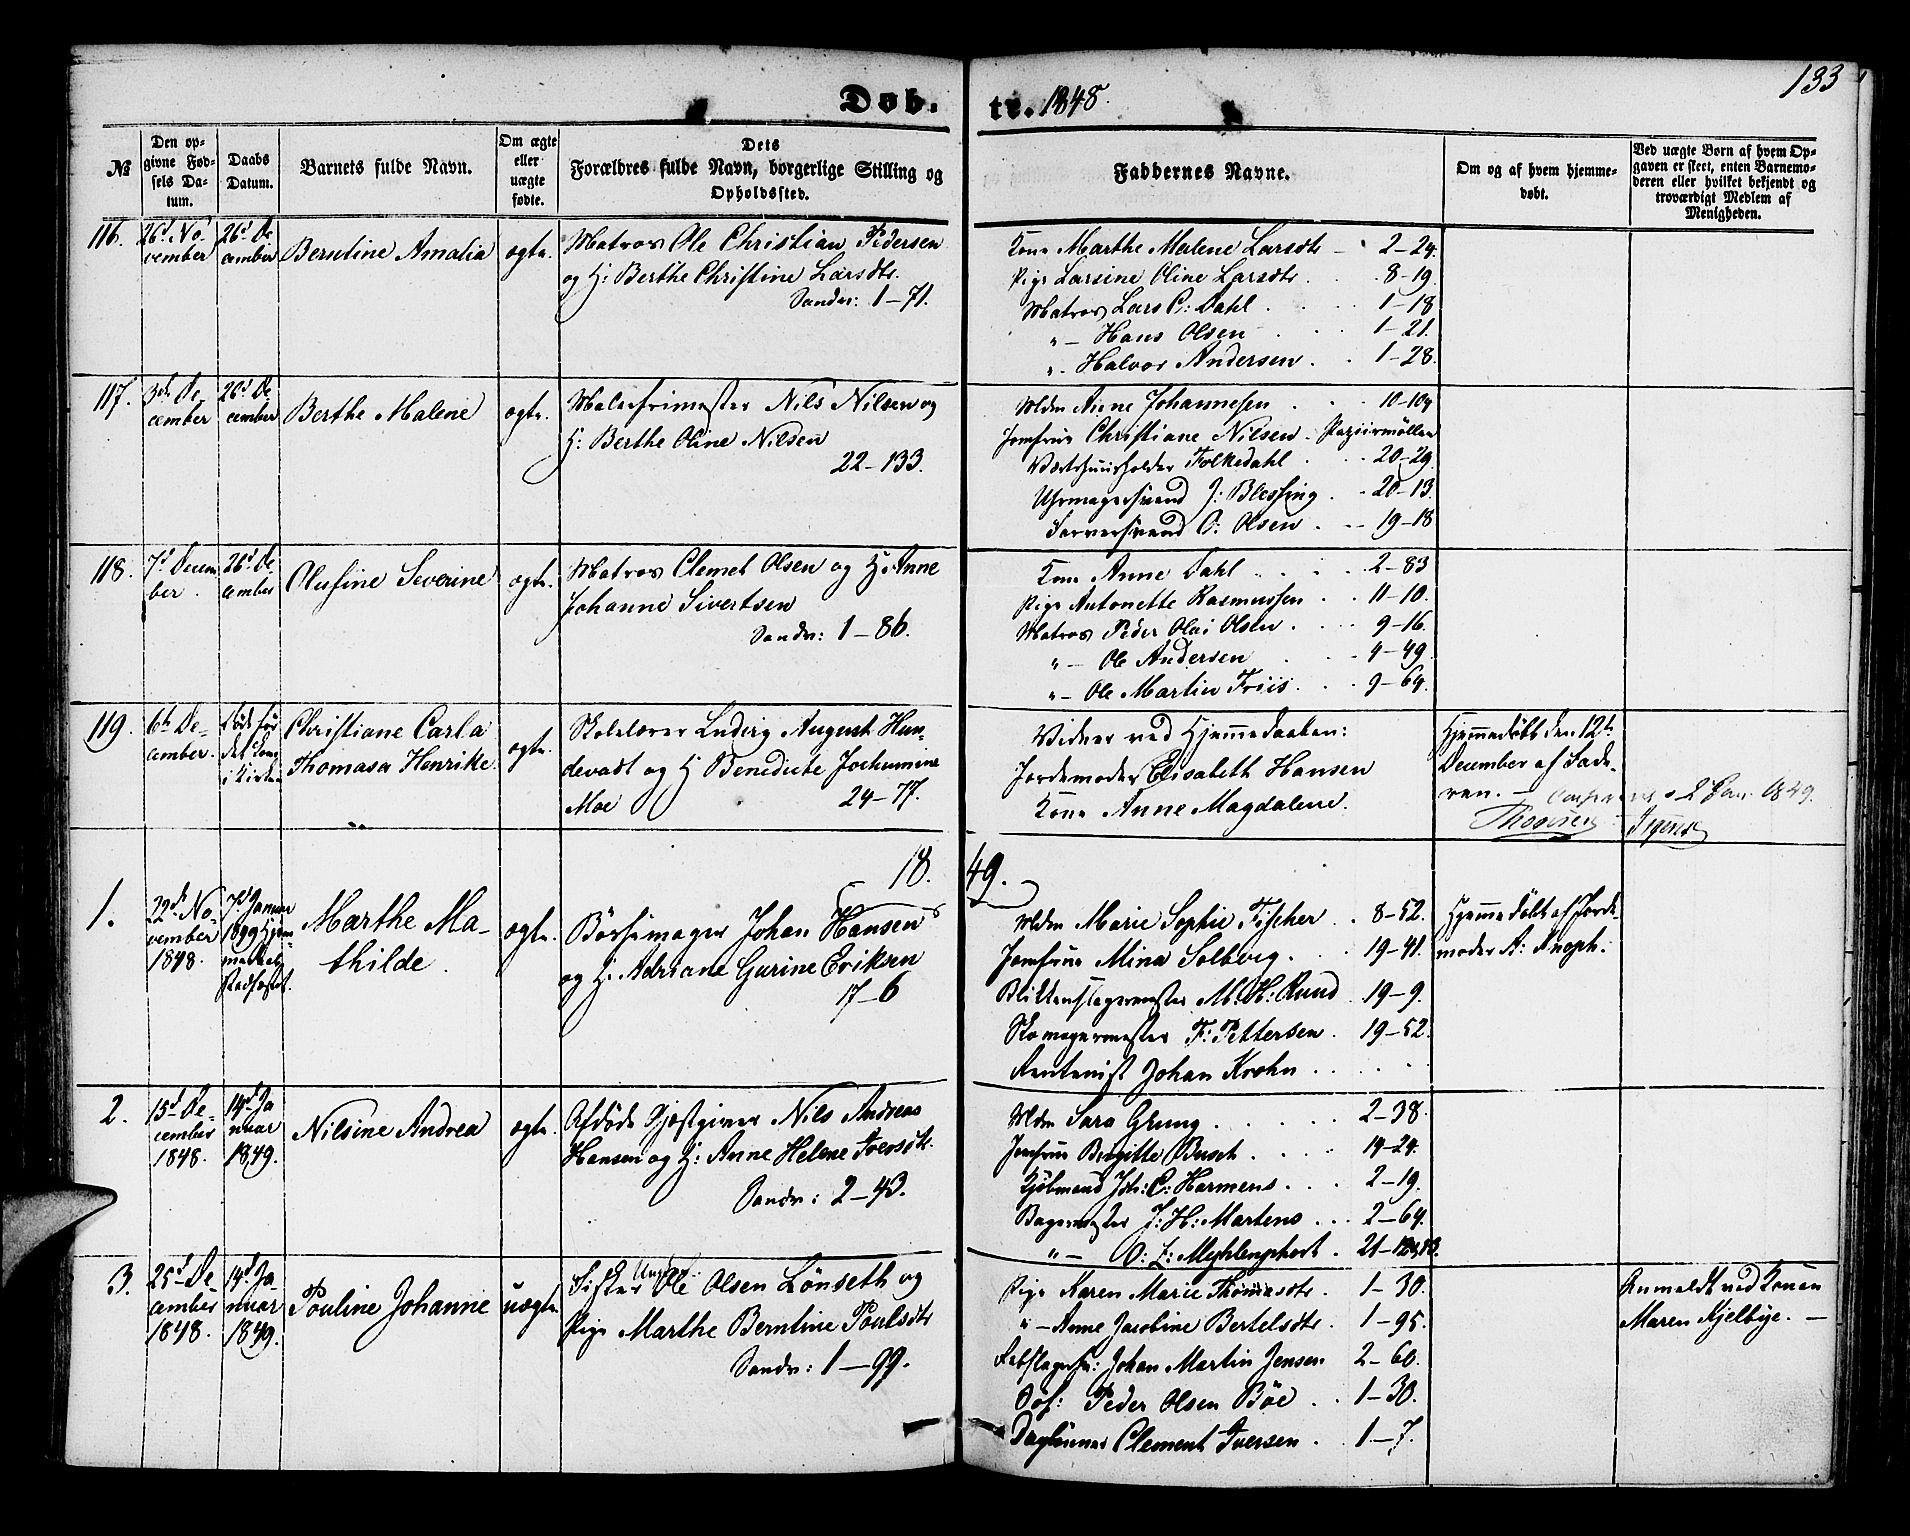 133
Døb. te. 1848.
№
Den opgivne Fødsels Datum.
Daabs Datum.
Barnets fulde Navn.
Om ægte eller uægte fødte.
Dets Forældres fulde Navn, borgerlige Stilling og Opholdssted.
Faddernes Navne.
Om og af hvem hjemmedøbt.
Ved uægte Børn af hvem Opgaven er skeet, enten Barnemoderen eller hvilket bekjendt og troværdigt Medlem af Menigheden.
116.
26d No-
vember
26d De
cember
Berntine Amalia
ægte.
Matros Ole Christian Pedersen
og H: Berthe Christine Larsdtr.
Sandv: 1-71.
Kone Marthe Malene Larsdtr - 2-24.
Pige Larsine Oline Larsdtr . 8-19.
Matros Lars C: Dahl . 1-18
" - Hans Olsen . 1-21.
" - Halvor Andersen . 1-28.
117.
3de De-
cember
26d De
cember
Berthe Malene
ægte.
Malerfrimester Nils Nilsen og
H: Berthe Oline Nilsen
22-133.
Mdm Anne Johannesen . 10-104
Jomfrue Christiane Nilsen . Papiirmøllen
Værtshuusholder Folkedahl . 20-29.
Uhrmagersvend J: Blessing . 20-13.
Farversvend O: Olsen . 19-18
118.
7d Decem
ber.
26d De
cember
Olufine Severine
ægte.
Matros Clemet Olsen og H: Anne
Johanne Sivertsen
Sandv: 1-86.
Kone Anne Dahl . 2-83
Pige Antonette Rasmussen . 11-10.
Matros Peder Olai Olsen . 9-16.
" - Ole Andersen . 4-49.
" - Ole Martin Friis . 9-64.
119.
6te De-
cember.
Døde før
det kom
i Kirken
Christiane Carla
Thomasa Henrike.
ægte.
Skolelærer Ludvig August Hun-
devadt og H Benedicte Jochumine
Moe 24-77.
Vidner ved Hjemmedaaben:
Jordemoder Elisabeth Hansen
Kone Anne Magdalene.
Hjemmedøbt den 12te
December af Fade-
ren. -
2 Jan. 1849.
1849.
1.
22de No-
vember
1848.
7d Januar
1849 Hjem-
medaab
stadfæstet.
Marthe Ma-
thilde.
ægte.
Børsemager Johan Hansen
og H: Adriane Gurine Eriksen
17-6
Mdm Marie Sophie Fischer . 8-52.
Jomfrue Mina Solbvig . 19-41.
Blikkenslagermester M: H: Rund . 19-9.
Skomagermester F: Pettersen . 19-52.
Rentenist Johan Krohn . . . .
Hjemmedøbt af Jorde-
moder A: Knoph.
2.
15d De-
cember
1848.
14d Ja
nuar
1849.
Nilsine Andrea
ægte.
Afdøde Gjæstgiver Nils Andreas
Hansen og H: Anne Helene Iversdtr.
Sandv: 2-43.
Mdm Sara Grung . . . . . 2-38.
Jomfrue Birgitte Busch . . . . 14-24.
Kjøbmand Joh: C: Harmens . . . 2-19.
Bagermester J: H: Martens . . . 2-64.
" - O: L: Myhlenphort . 21-
3.
25d De
cember
1848.
14d Ja-
nuar
1849.
Pouline Johanne
uægte.
Fisker Ungkl. Ole Olsen Lönseth og
Pige Marthe Berntine Poulsdtr
Sandv: 1-99.
Pige Karen Marie Thomasdtr . 1-30.
" - Anne Jacobine Bertelsdtr . 1-95.
Rebslagersv: Johan Martin Jensen 2-60.
Søf: Peder Olsen Böe . . 1-30.
Daglønner Clement Iversen . 1-7.
Anmeldt ved Konen
Maren Kjelbye. -